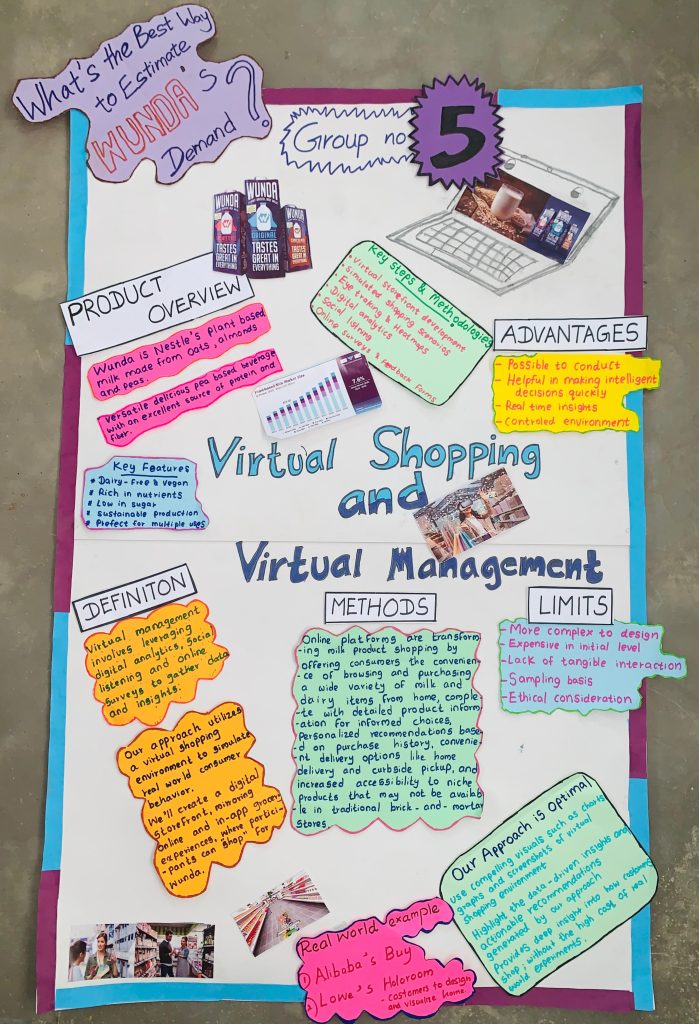 What's the Best Way
to Estimate
WUNDA's
Demand ?
Group no
5
WUNDA
WUNDA
ORIGINAL
TASTES
GREAT IN
EVERYTHING
TASTES
GREAT IN
EVERYTHING
TASTES
GREAT IN
EVERYTHING
PRODUCT
OVERVIEW
Wunda is Nestle's plant based
milk made from oats, almonds
and peas.
versatile delicious pea based beverage
with an excellent source of protein and
fiber.
Key Features
Dairy-Free & Vegan
Rich in nutrients
Low in sugar
sustainable production
Prefect for multiple uses
Key Steps & Methodologies
Virtual storefront development
Simulated shopping scenarios
Eye traking & Heatmaps
Digital analytics
Social listning
Online surveys & feedback forms
7.8%
ADVANTAGES
- Possible to conduct
- Helpful in making intelligent
decisions quickly
- Real time insights
- Controled environment
Virtual Shopping
and
Virtual Management
DEFINITON
Virtual management
involves leveraging
digital analytics, social
listening and online
surveys to gather data
and insights.
Our approach utilizes
a virtual shopping
environment to simulate
real world consumer
behavior.
We'll create a digital
Storefront, mirroring
Online and in-app grocery
experiences, where partici-
-pants can "shop" for
Wunda.
METHODS
Online platforms are transform
-ing milk product shopping by
offering consumers the convenien-
-ce of browsing and purchasing
a wide variety of milk and
dairy items from home, comple-
-te with detailed product inform
-ation for informed choices,
personalized recommendations base-
-d on purchase history, convenie-
nt delivery options like home
delivery and curbside pickup, and
increased accessibility to niche
Products that may not be availab
-le in traditional brick-and-mortar
Stores.
LIMITS
- More complex to design
- Expensive in initial level
- Lack of tangible interaction
- Sampling basis
- Ethical consideration
Our Approach is Optimal
Use compelling visuals such as charts
graphs and screenshots of virtual
shopping environment
Highlight the data-driven insights and
actionable recommendations
generated by our approach
Provides deep insight into how customers
shop, without the high cost of real
world experiments.
Real world example
1) Aliboba's Buy
2) Lowe's Holoroom
- customers to design
and visualize home.